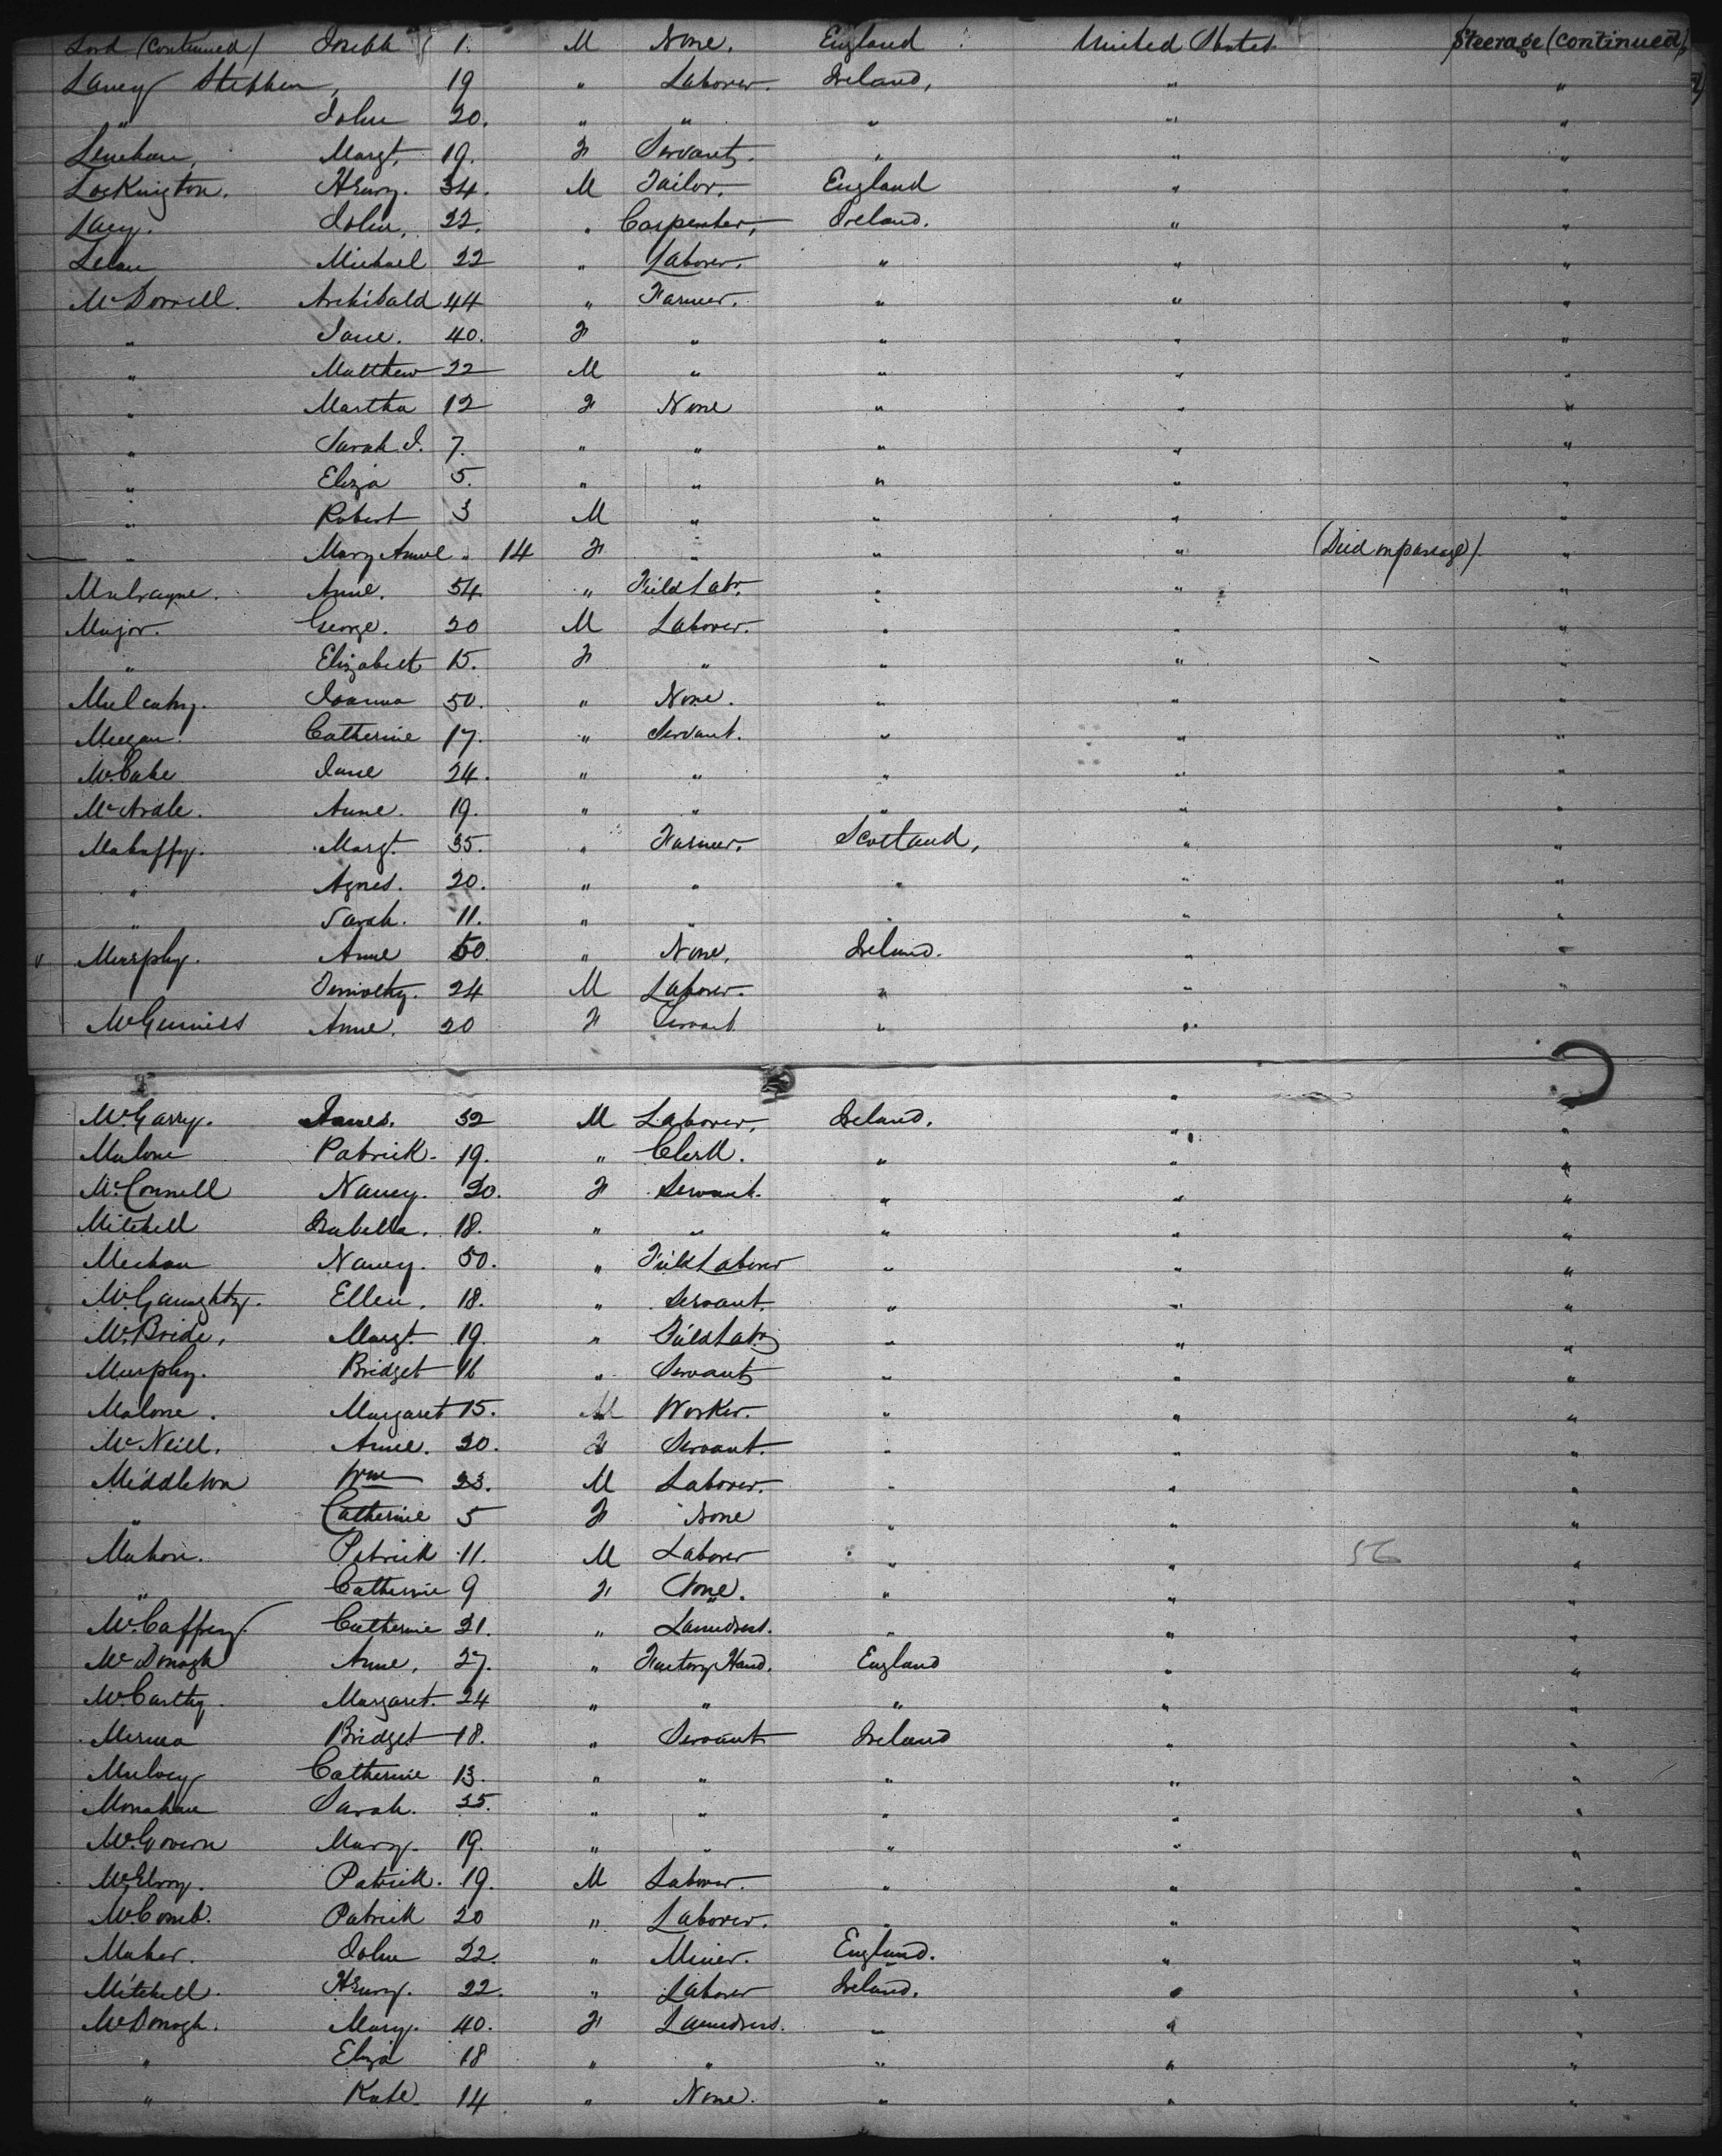 Lord (Continued) Joseph 1. M None. England United States. Steerage (continued)
Laney Stephen, 19 " Laborer. Ireland, " "
" John 20. " " " " "
Lenehan, Margt. 19. F Servant. " " "
Lockington. Henry. 34. M Tailor. England " "
Lacy. John. 22. " Carpenter, Ireland. " "
Michael 22 " Laborer. " " "
McDowell. Archibald 44 " Farmer. " " "
" Jane. 40. F " " " "
" Matthew 22 M " " " "
" Martha 12 F None " " "
" Sarah J. 7. " " " " "
" Eliza 5. " " " " "
" Robert 3 M " " " "
" Mary Anne " 14 F " " " (Died on passage) "
Anne. 54 " Field Labr. " " "
Major. George. 20 M Laborer. " " "
" Elizabeth 15. F " " " "
Mulcahy. Joanna 50. " None. " " "
Meegan. Catherine 17. " Servant. " " "
McCabe Jane 24. " " " " "
McArdle. Anne. 19. " " " " "
Mahaffy. Margt. 35. " Farmer. Scotland, " "
" Agnes. 20. " " " " "
" Sarah. 11. " " " " "
" Murphy. Anne 50. " None. Ireland. " "
Timothy. 24 M Laborer. " " "
McGuiniss Anne. 20 F Servant " "
McGarry. James. 32 M Laborer, Ireland. " "
Malone Patrick. 19. " Clerk. " " "
McConnell Nancy. 20. F Servant. " " "
Mitchell Isabella. 18. " " " " "
Meehan Nancy. 50. " Field Laborer " " "
McGaughty. Ellen. 18. " Servant. " " "
McBride. Margt. 19 " Field Labr " " "
Murphy. Bridget 16 " Servant " " "
Malone. Margaret 15. M Worker. " " "
McNeill. Anne. 20. F Servant. " " "
Middleton Wm 23. M Laborer. " " "
" Catherine 5 F None " " "
Mahon. Patrick 11. M Laborer " " 56 "
" Catherine 9 F None. " " "
McCaffery. Catherine 21. " Laundress. " "
McDonogh Anne. 27. " Factory Hand. England " "
McCarthy. Margaret. 24 " " " " "
Bridget 18. " Servant Ireland " "
Mulvey Catherine 13. " " " " "
Monahan Sarah. 35. " " " " "
McGovern Mary. 19. " " " " "
McElroy. Patrick. 19. M Laborer. " " "
McComb. Patrick 20 " Laborer. " " "
Maher. John 22. " Miner. England. " "
Mitchell. Henry. 22. " Laborer Ireland. " "
McDonogh. Mary. 40. F Laundress. " " "
" Eliza 18 " " " " "
" Kate. 14 " None. " " "